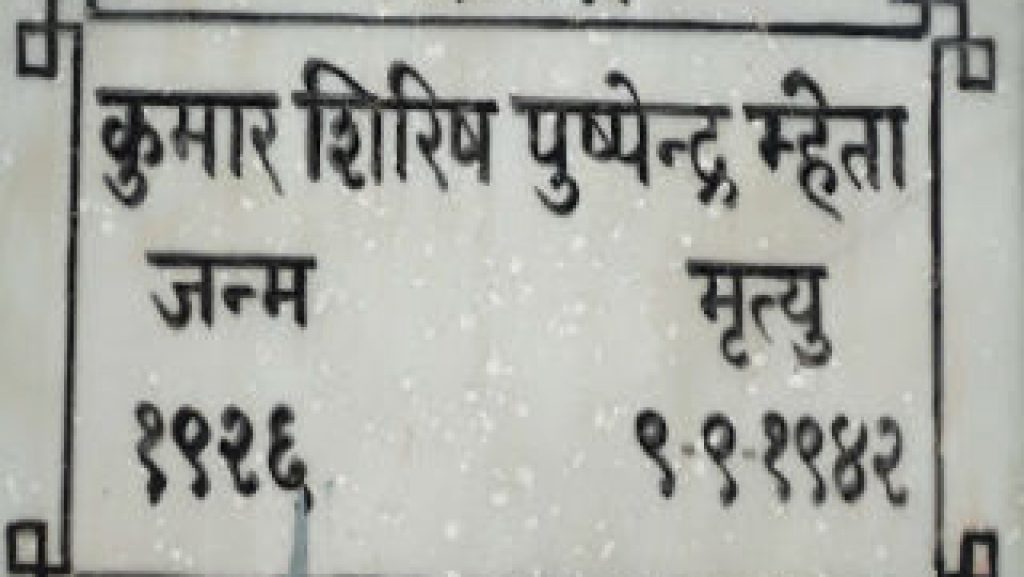 कुमार शिरिष पुष्पेन्द्र म्हेता
जन्म मृत्यु
१९२६ ९-९-१९४२